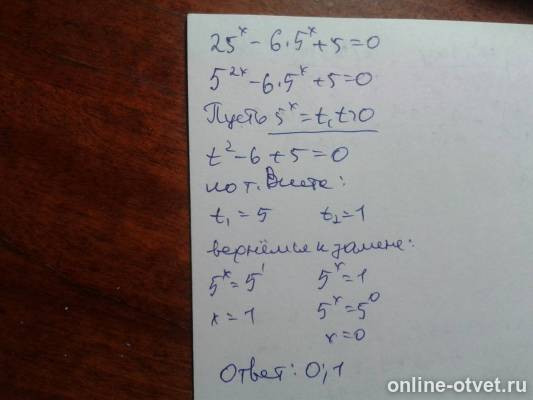 25ˣ - 6·5ˣ + 5 = 0
5²ˣ - 6·5ˣ + 5 = 0
Пусть 5ˣ = t, t>0
t² - 6 + 5 = 0
по т. Виета:
t₁ = 5 t₂ = 1
вернёмся к замене:
5ˣ = 5¹ 5ˣ = 1
x = 1 5ˣ = 5⁰
x = 0
Ответ: 0; 1
online-otvet.ru